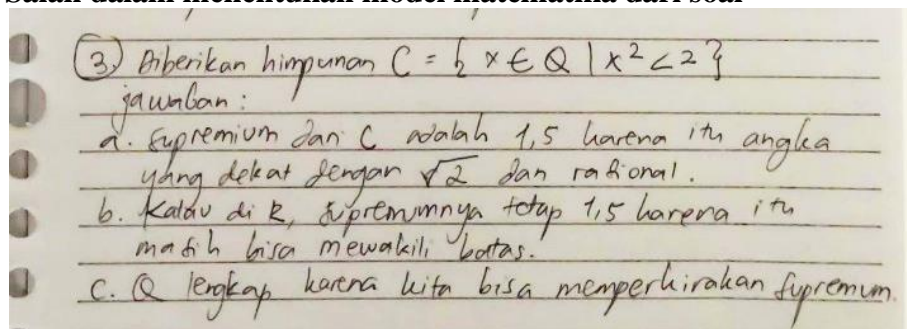 Salah dalam menentukan model matematika dari soal
3) Diberikan himpunan C = { x ∈ Q | x² < 2 }
jawaban :
a. Supremium dari C adalah 1,5 karena itu angka
yang dekat dengan √2 dan rasional.
b. Kalau di R, supremumnya tetap 1,5 karena itu
masih bisa mewakili batas.
C. Q lengkap karena kita bisa memperkirakan supremum.